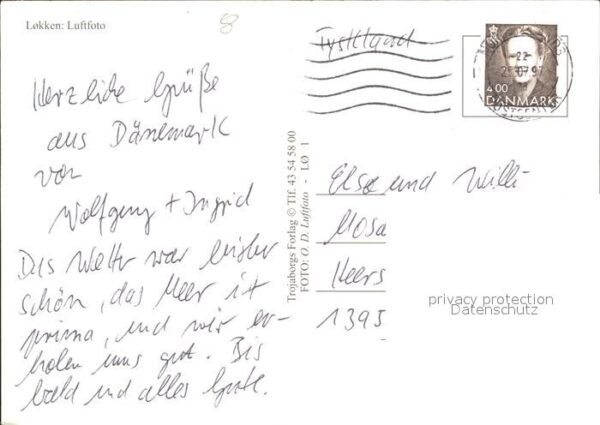 Løkken: Luftfoto
8
Tyskland
22
25.07.97
4.00
DANMARK
Herzliche Grüße
aus Dänemark
von
Wolfgang + Ingrid
Das Wetter war bisher
schön, das Meer ist
prima, und wir er-
holen uns gut. Bis
bald und alles Gute.
Trojaborgs Forlag © Tlf. 43 54 58 00
FOTO: O. D. Luftfoto - LØ 1
Else und Willi
Mosa
Heers
1395
privacy protection
Datenschutz